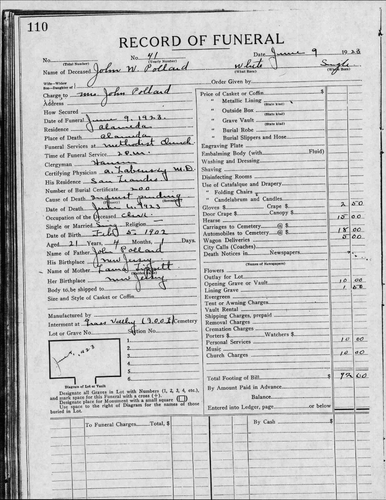 110
RECORD OF FUNERAL
No. 41 Date June 9 1923
Name of Deceased John W. Pollard White Single
Charge to Mrs John Pollard
Address
How Secured
Date of Funeral June 9, 1923
Residence Alameda
Place of Death Alameda
Funeral Services at Methodist Church
Time of Funeral Service 2 P.M.
Clergyman
Certifying Physician M.D.
His Residence San Leandro
Number of Burial Certificate 200
Cause of Death Inquest pending
Date of Death 1923
Occupation of the Deceased Clerk
Single or Married Religion
Date of Birth Feb 5, 1902
Aged 21 Years 4 Months, Days
Name of Father John Pollard
His Birthplace New Jersey
Name of Mother
Her Birthplace New Jersey
Body to be shipped to
Size and Style of Casket or Coffin
Manufactured by
Interment at Grass Valley Cemetery
Lot or Grave No. Section No.
1.
2.
3.
4.
5.
Diagram of Lot or Vault
Designate all Graves in Lot with Numbers (1, 2, 3, 4, etc.), and mark space for this Funeral with a cross (+).
Designate place for Monument with a small square
Use space to the right of Diagram for the names of those buried in Lot.
To Funeral Charges Total, $
Order Given by
Price of Casket or Coffin
" Metallic Lining
" Outside Box
" Grave Vault
" Burial Robe
" Burial Slippers and Hose
Engraving Plate
Embalming Body (with Fluid)
Washing and Dressing
Shaving
Disinfecting Rooms
Use of Catafalque and Drapery
" Folding Chairs
" Candelabrum and Candles
Gloves $ Crape $ 2 50
Door Crape Canopy $
Hearse 15 00
Carriages to Cemetery @ $
Automobiles to Cemetery @ $ 18 00
Wagon Deliveries 5 00
City Calls (Coaches)
Death Notices in Newspapers
(Names of Newspapers)
Flowers
Outlay for Lot
Opening Grave or Vault 10 00
Lining Grave 1 50
Evergreen
Tent or Awning Charges
Vault Rental
Shipping Charges, prepaid
Removal Charges
Cremation Charges
Porters $ Watchers $
Personal Services 10 00
Music
Church Charges 10 00
Total Footing of Bill $ 72 00
By Amount Paid in Advance
Balance
Entered into Ledger, page or below
By Cash $